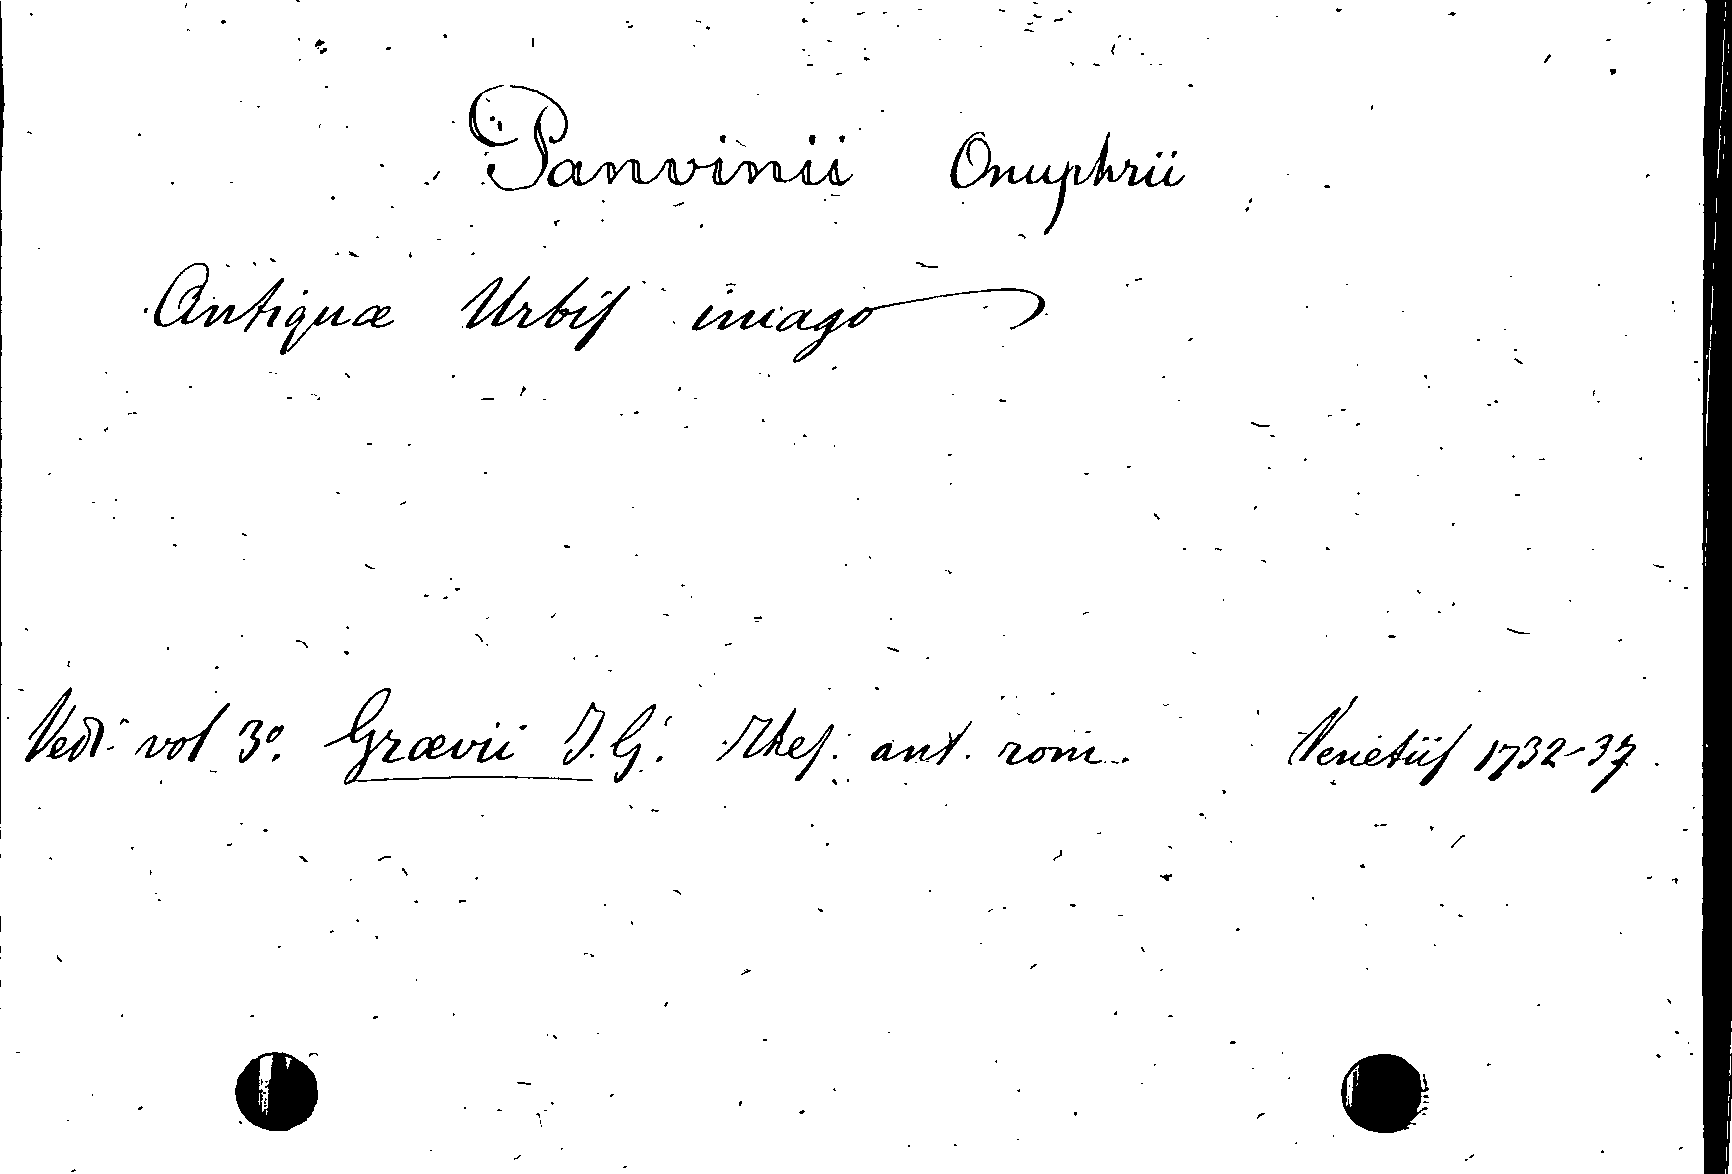 Panvinii Onuphrii
Antiquæ Urbis imago
Vedi vol 3º. Grævii J. G. Thes. ant. rom. Venetiis 1732-37